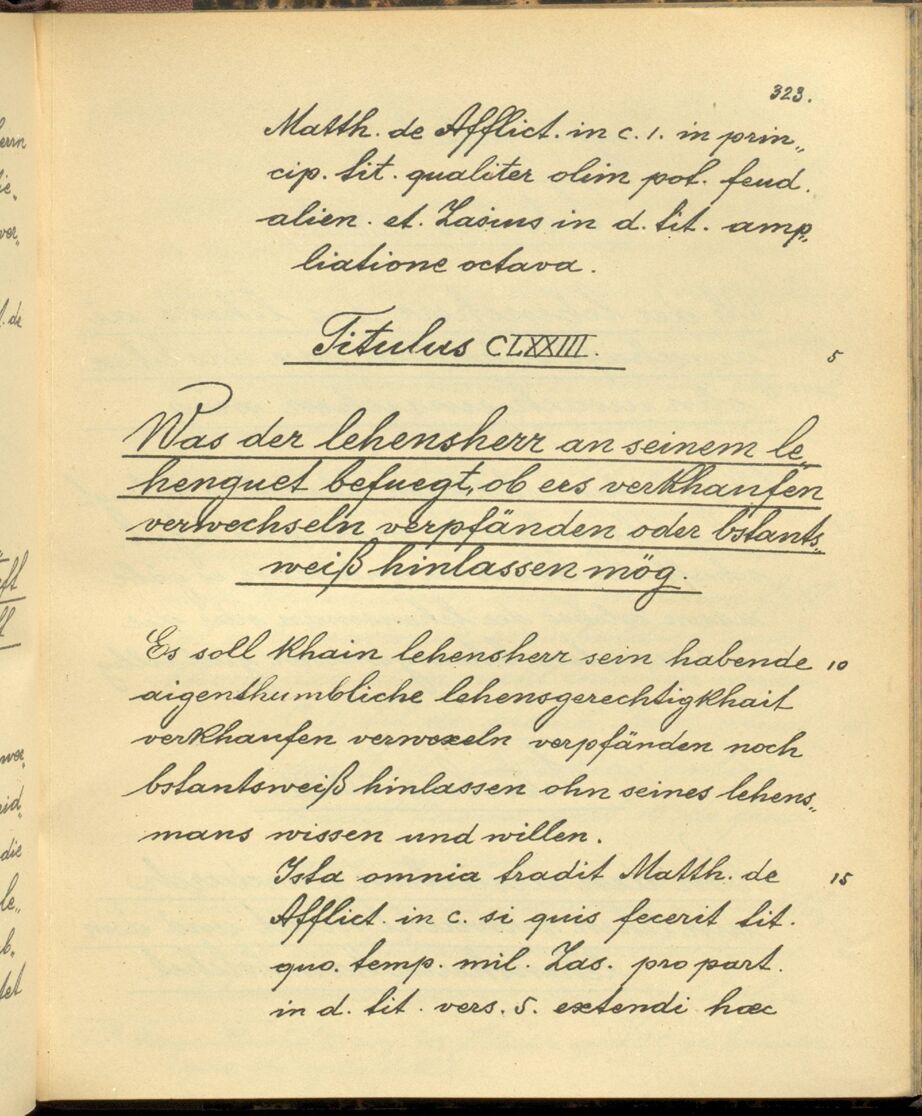 323.
Matth. de Afflict. in c. 1. in prin„
cip. tit. qualiter olim pot. feud.
alien. et. Zasius in d. tit. amp„
liatione octava.
Titulus CLXXIII. 5
Was der lehensherr an seinem le„
henguet befuegt, ob ers verkhaufen
verwechseln verpfänden oder bstants„
weiß hinlassen mög.
Es soll khain lehensherr sein habende 10
aigenthumbliche lehensgerechtigkhait
verkhaufen verwexeln verpfänden noch
bstantsweiß hinlassen ohn seines lehens„
mans wissen und willen.
Ista omnia tradit Matth. de 15
Afflict. in c. si quis fecerit tit.
quo. temp. mil. Zas. pro part.
in d. tit. vers. 5. extendi hæc